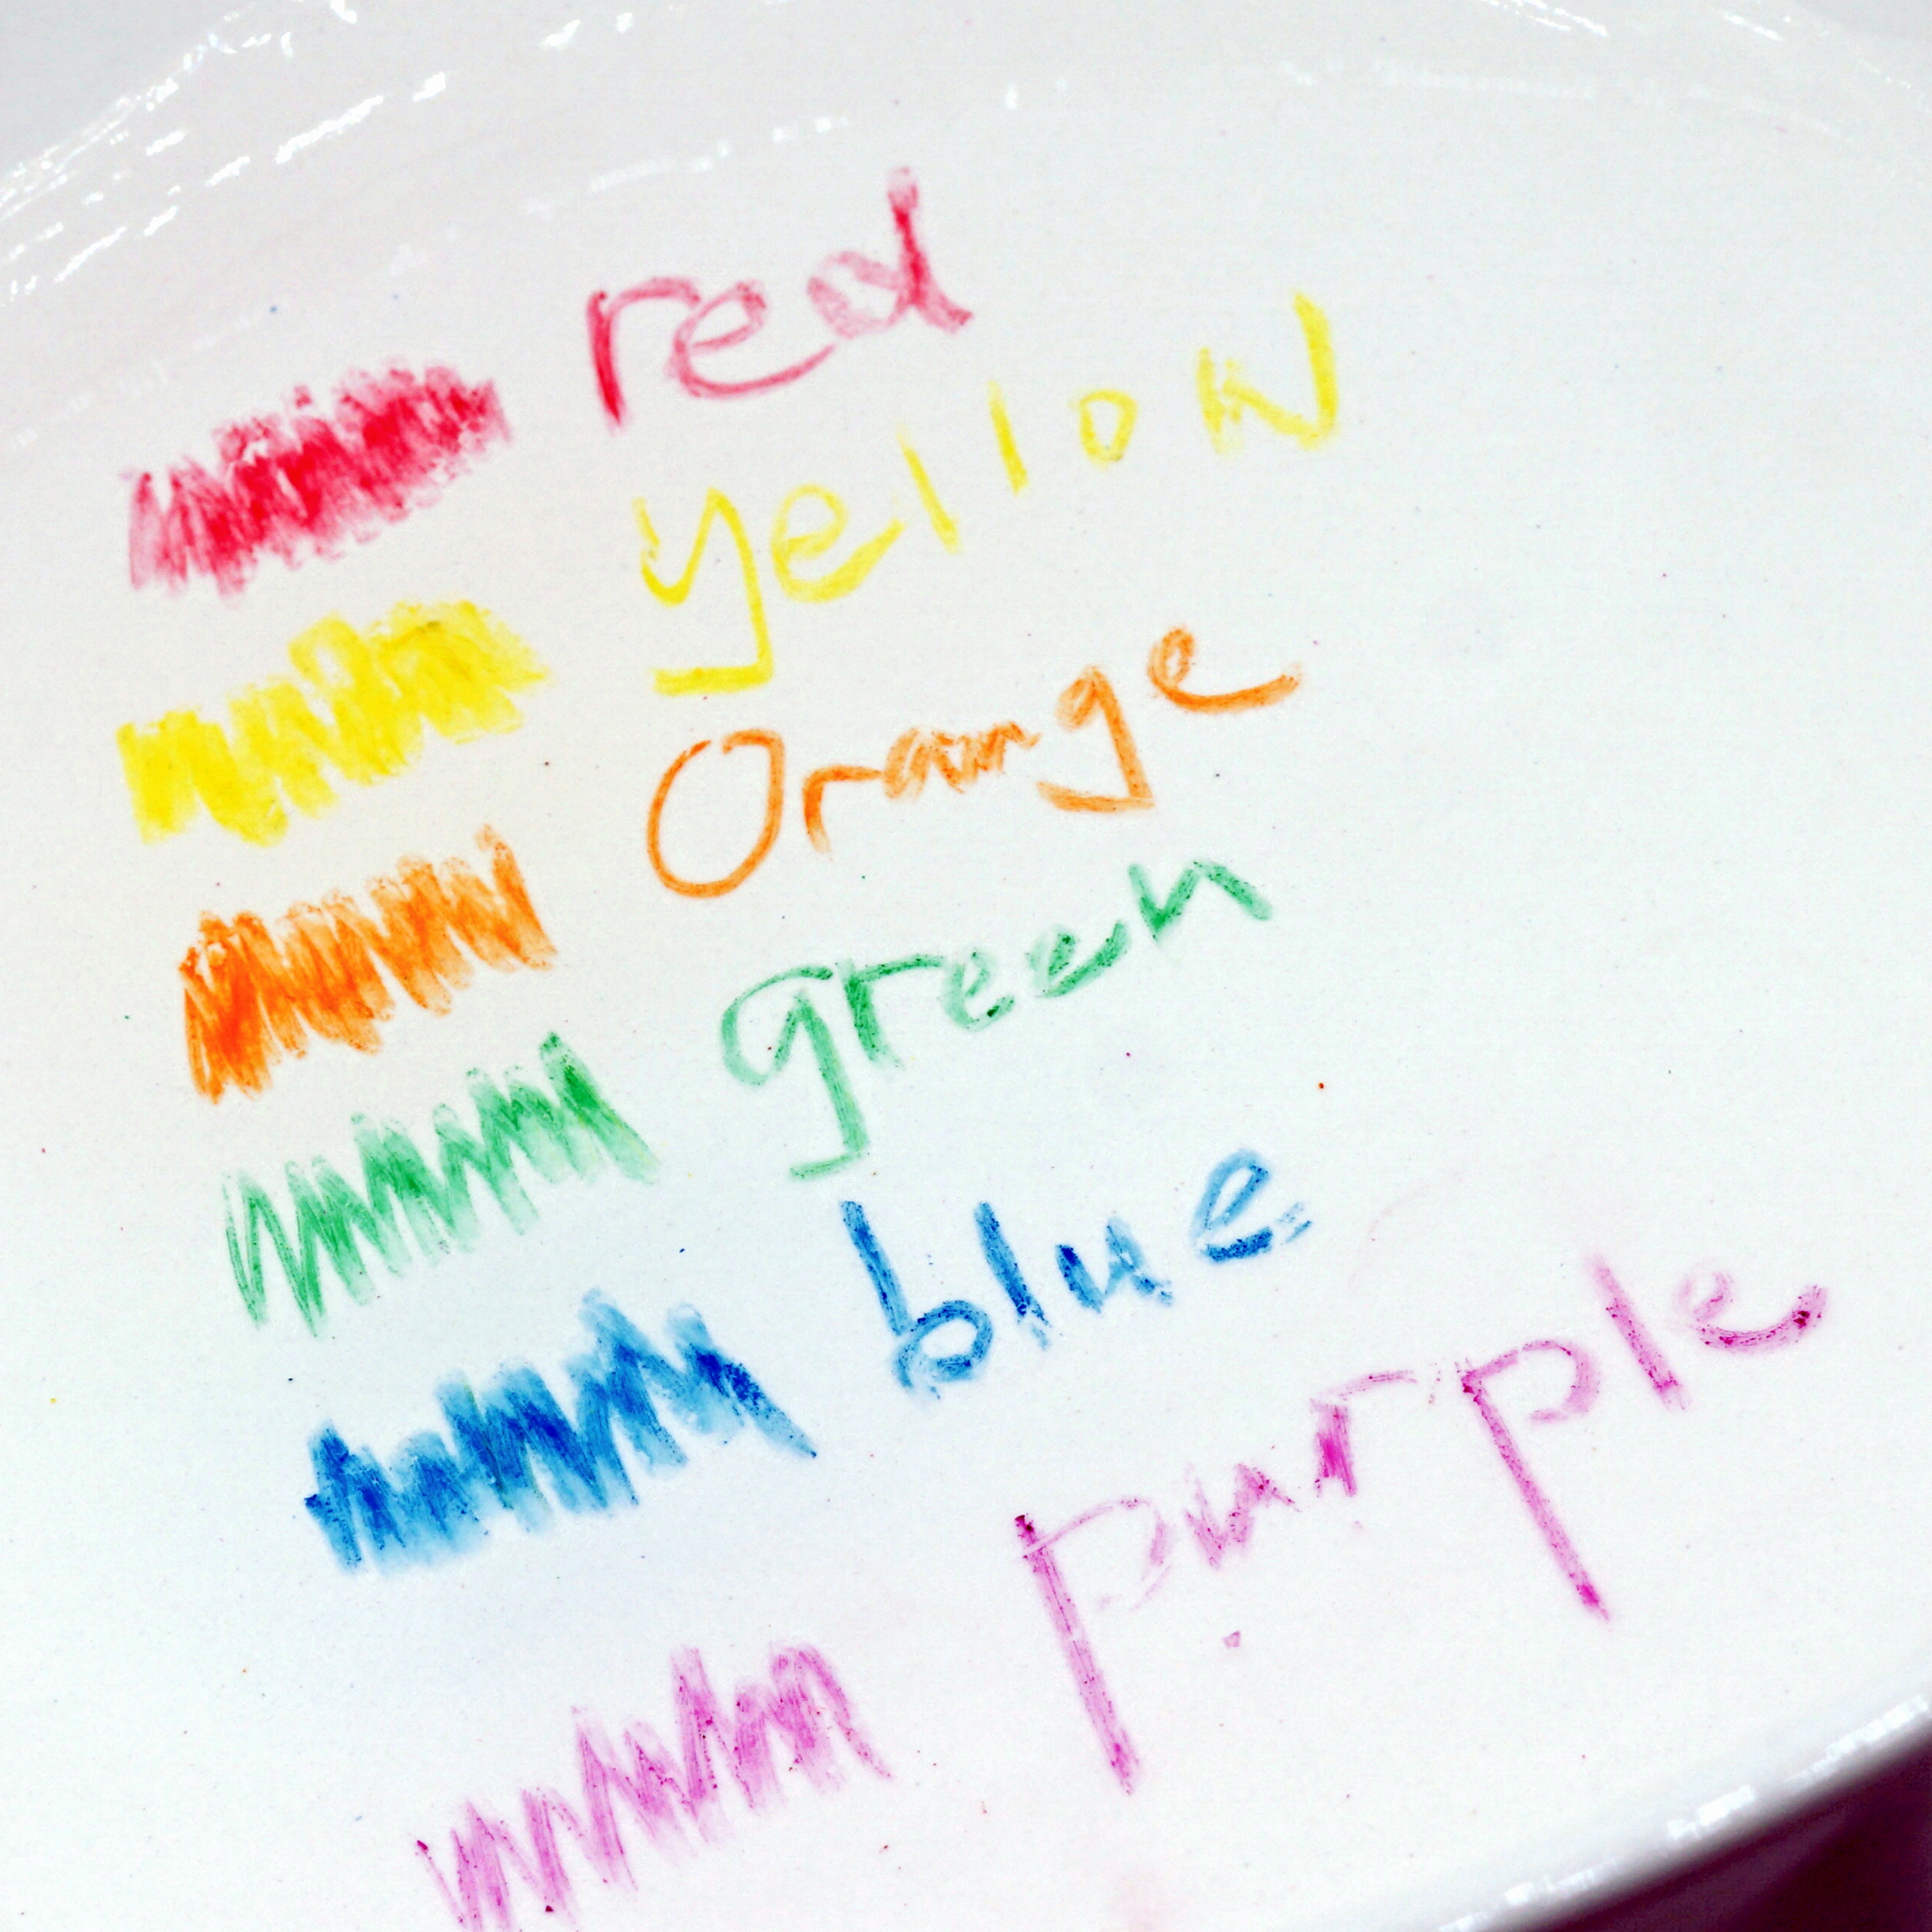 red
yellow
Orange
green
blue
purple